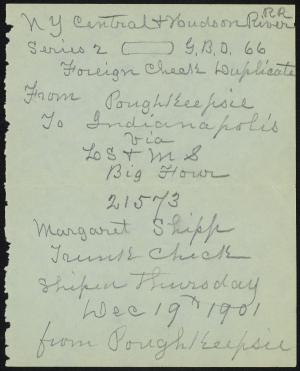 NY Central & Hudson River RR
Series 2 G.B.D. 66
Foreign Check Duplicate
From Poughkeepsie
To Indianapolis
Via
LS & MS
Big Four
21573
Margaret Shipp
Trunk Check
Shiped Thursday
Dec 19th 1901
from Poughkeepsie